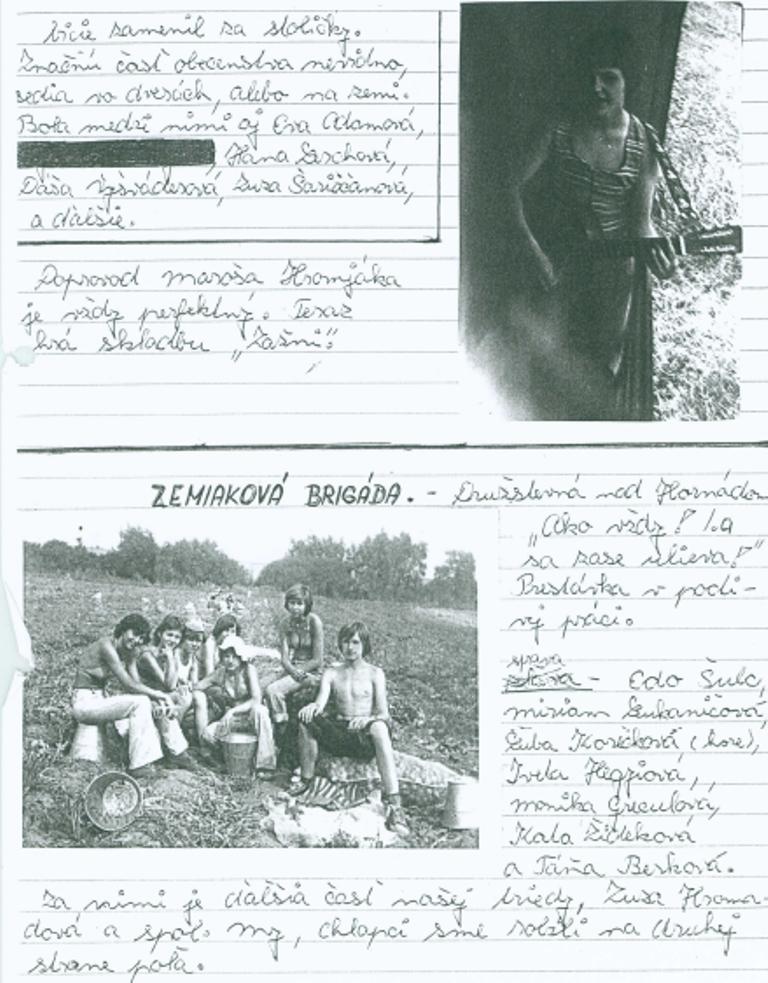 bicie zamenil za stoličky.
Značnú časť obecenstva nevidno,
sedia vo dverách, alebo na zemi.
Bola medzi nimi aj Eva Adamová,
Hana
Dáša Zuza
a ďalšie.
Doprovod maroša Hromjáka
je vždy perfektný. Teraz
hrá skladbu „Zažni“.
ZEMIAKOVÁ BRIGÁDA. - Družstevná nad Hornádom
„Ako vždy! 1.a
sa zase ulieva!"
Prestávka v poctivej
práci.
sprava
- Edo Šulc,
miriam
Ľuba Korečková (hore),
Iveta
monika
Kala Žideková
a Táňa Berková.
Za nimi je ďalšia časť našej triedy, Zuza Hromadová
a spol. my, chlapci sme robili na druhej
strane poľa.